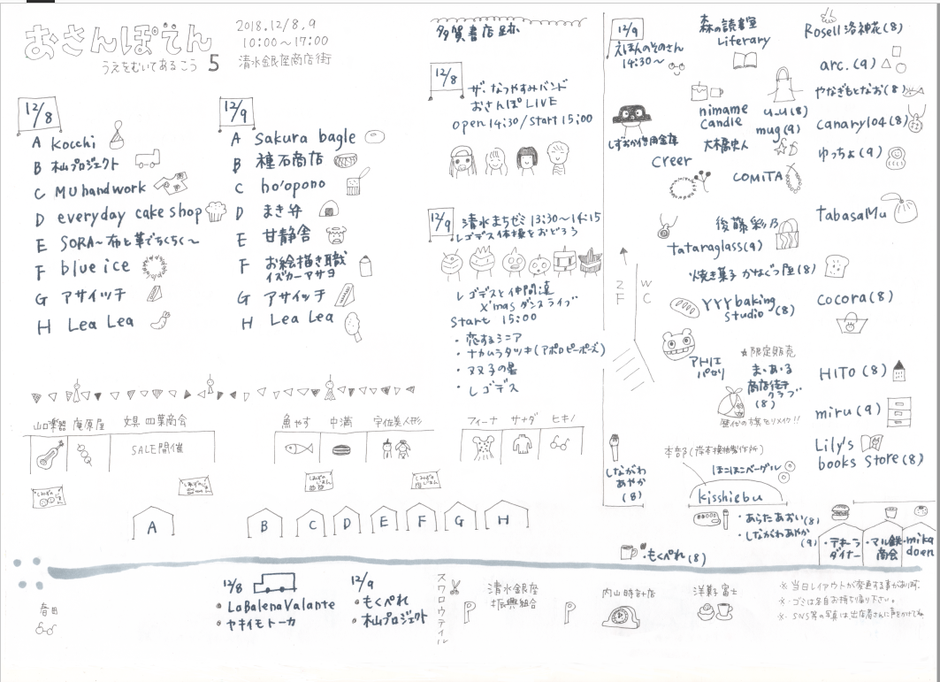 おさんぽてん
うえをむいてあるこう 5
2018.12/8.9
10:00〜17:00
清水銀座商店街
12/8
A Kocchi
B 杣山プロジェクト
C MU handwork
D everyday cake shop
E SORA〜布と革でちくちく〜
F blue ice
G アサイッチ
H Lea Lea
12/9
A Sakura bagle
B 種石商店
C ho'opono
D まき弁
E 甘静舎
F お絵描き職
イズカーアサヨ
G アサイッチ
H Lea Lea
多賀書店跡
12/8
ザ・なつやすみバンド
おさんぽLIVE
open 14:30/start 15:00
12/9
清水まちゼミ 13:30〜14:15
レゴデス体操をおどろう
レゴデスと仲間達
X'masダンスライブ
Start 15:00
・恋するシニア
・ナカムラタツキ(アポロピーポーズ)
・ヌヌ子の星
・レゴデス
12/9
えほんのそのさん
14:30〜
森の読書室
Liferary
Rosell 洛神花(8)
arc.(9)
やなぎもとなお(8)
nimame
candle
u-u(8)
mug(9)
canary104(8)
しずおか信用金庫
大木喬史人
ゆっちょ(9)
creer
COMiTA
tabasaMu
後藤彩乃
tataraglass(9)
2F
WC
焼き菓子 かなぐつ屋(8)
YYY baking
studio(8)
cocora(8)
アトリエ
パロリ
※限定販売
ま・あ・る
商店街
クラブ
(8)
HITO(8)
miru(9)
本部
ほこほこベーグル
Lily's
books store(8)
しながわ
あやか
(8)
kisshiebu
・あらたあおい(8)
・しながわあやか
(9)
・もくぺれ(8)
・テキーラ
ダイナー
・マル鉄
商会
・mika
doen
山口楽器
庵原屋
文具 四葉商会
SALE開催
魚やす
中満
宇佐美人形
フィーナ
サッダ
ヒキノ
A
B
C
D
E
F
G
H
春田
12/8
・LaBalenaValante
・ヤキイモトーカ
12/9
・もくぺれ
・杣山プロジェクト
スワロウテイル
P
清水銀座
振興組合
P
内山時計店
洋菓 富士
※当日レイアウトが変更する事があります。
※ゴミは各自お持ち帰り下さい。
※SNS等の写真は出店者さんに声をかけてね